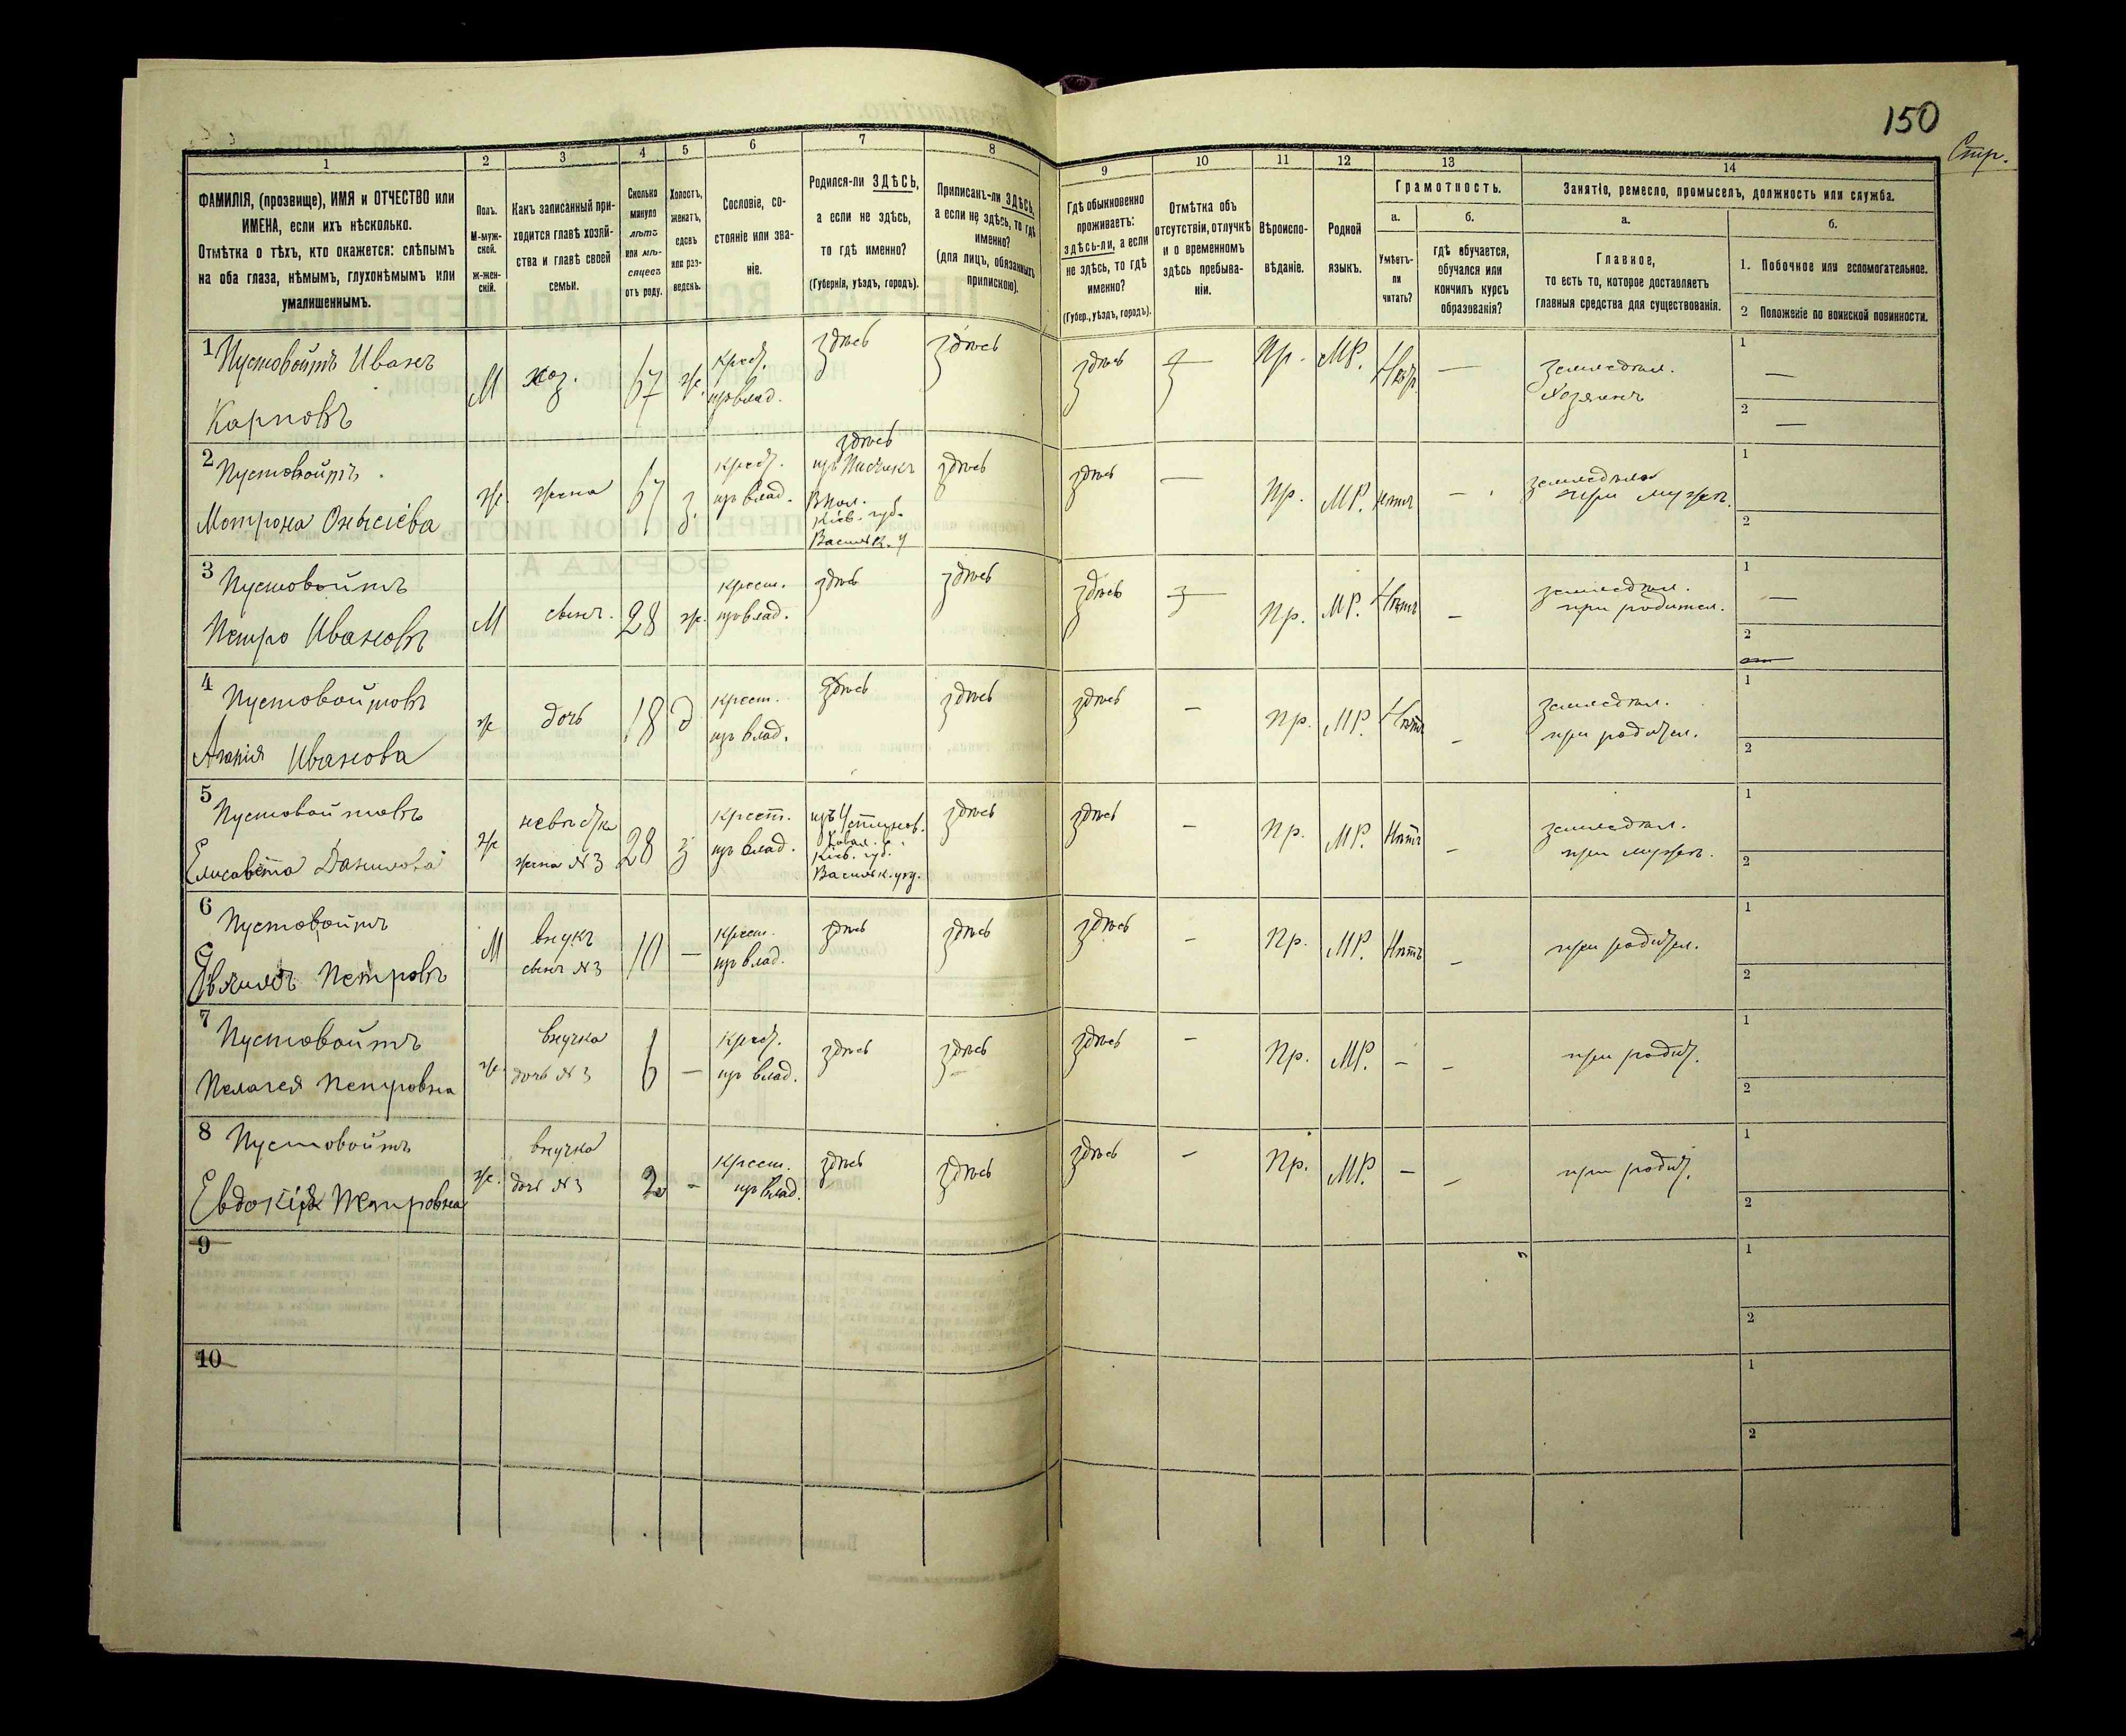 150
Стр.
1 2 3 4 5 6 7 8 9 10 11 12 13 14
ФАМИЛІЯ, (прозвище), ИМЯ и ОТЧЕСТВО или
ИМЕНА, если ихъ нѣсколько.
Отмѣтка о тѣхъ, кто окажется: слѣпымъ
на оба глаза, нѣмымъ, глухонѣмымъ или
умалишеннымъ.
Полъ.
М-муж-
ской.
Ж-жен-
скій.
Какъ записанный при-
ходится главѣ хозяй-
ства и главѣ своей
семьи.
Сколько
минуло
лѣтъ
или мѣ-
сяцевъ
отъ роду.
Холостъ,
женатъ,
вдовъ
или раз-
веденъ.
Сословіе, со-
стояніе или зва-
ніе.
Родился-ли ЗДѢСЬ,
а если не здѣсь,
то гдѣ именно?
(Губернія, уѣздъ, городъ).
Приписанъ-ли ЗДѢСЬ,
а если не здѣсь, то гдѣ
именно?
(для лицъ, обязанныхъ
припискою).
Гдѣ обыкновенно
проживаетъ:
здѣсь-ли, а если
не здѣсь, то гдѣ
именно?
(Губер., уѣздъ, городъ).
Отмѣтка объ
отсутствіи, отлучкѣ
и о временномъ
здѣсь пребыва-
ніи.
Вѣроиспо-
вѣданіе.
Родной
языкъ.
Грамотность.
а.
Умѣетъ-
ли
читать?
б.
гдѣ обучается,
обучался или
кончилъ курсъ
образованія?
Занятіе, ремесло, промыселъ, должность или служба.
а.
Главное,
то есть то, которое доставляетъ
главныя средства для существованія.
б.
1. Побочное или вспомогательное.
2 Положеніе по воинской повинности.
1 Пустовойтъ Иванъ
Карповъ
М
хоз.
67
ж.
крест.
изъ влад.
здѣсь
здѣсь
здѣсь
—
Пр.
МР.
—
земледѣл.
Хозяинъ
1 —
2 —
2 Пустовойтъ
Мотрона Онысіева
ж.
жена
67
з.
крест.
изъ влад.
здѣсь
Кіев. губ.
Васильк. у
здѣсь
здѣсь
—
Пр.
МР.
нѣтъ
—
земледѣл.
при мужѣ.
1
2
3 Пустовойтъ
Петро Ивановъ
М
сынъ.
28
ж.
крест.
изъ влад.
здѣсь
здѣсь
здѣсь
Пр.
МР.
Нѣтъ
—
земледѣл.
при родител.
1 —
2
4 Пустовойтовъ
Агафія Иванова
ж
дочь
18
д
крест.
изъ влад.
здѣсь
здѣсь
здѣсь
—
Пр.
МР.
Нѣтъ
—
земледѣл.
при родител.
1
2
5 Пустовойтовъ
Елисавета Данилова
ж
невѣстка
жена №3
28
з
крест.
изъ влад.
Кіев. губ.
Васильк. уѣзд.
здѣсь
здѣсь
—
Пр.
МР.
Нѣтъ
—
земледѣл.
при мужѣ.
1
2
6 Пустовойтъ
Петровъ
М
внукъ
сынъ №3
10
—
крест.
изъ влад.
здѣсь
здѣсь
здѣсь
—
Пр.
МР.
Нѣтъ
—
при родител.
1
2
7 Пустовойтъ
Пелагея Петровна
ж.
внучка
дочь №3
6
—
крест.
изъ влад.
здѣсь
здѣсь
здѣсь
—
Пр.
МР.
—
—
при родит.
1
2
8 Пустовойтъ
Евдокія Петровна
ж.
внучка
дочь №3
2
—
крест.
изъ влад.
здѣсь
здѣсь
здѣсь
—
Пр.
МР.
—
—
при родит.
1
2
9
1
2
10
1
2